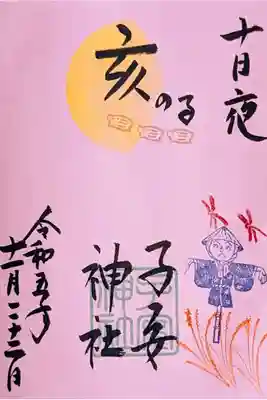 十日夜
亥の子
子安
神社
令和五年
十一月二十二日